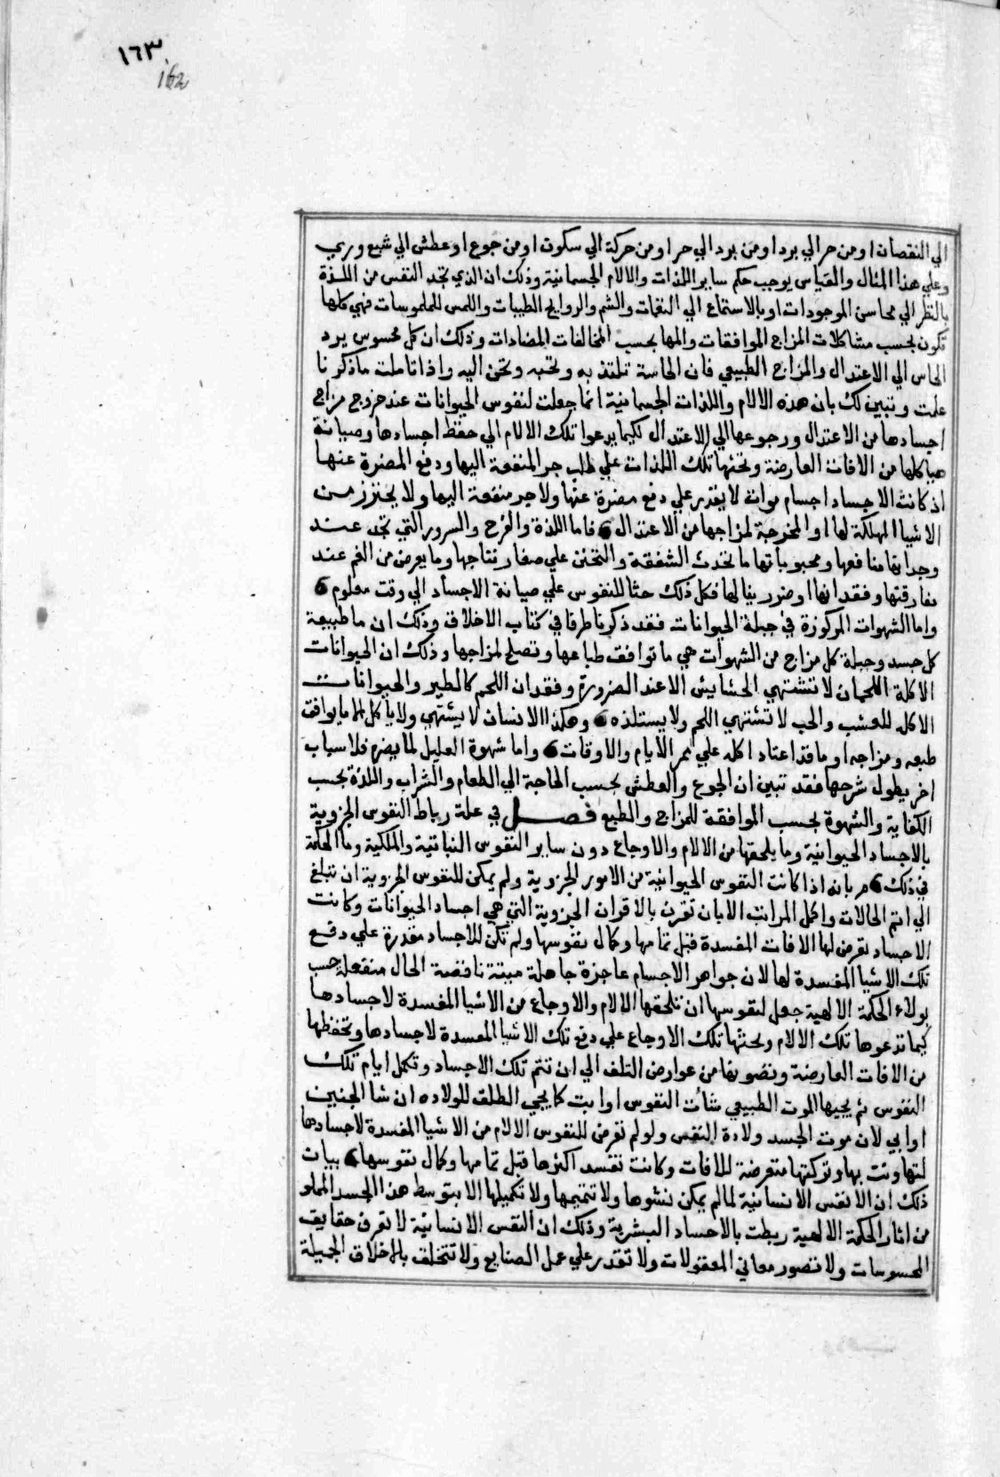 ١٦٣
162
الي النقصان او من حر الي برد او من برد الي حر او من حركة الي سكون او من جوع او عطش الي شبع وري
وعلي هذا المثال والقياس يوجب حكم ساير اللذات والالام الجسمانية وذلك ان الذي تجد النفس من اللذة
بالنظر الي محاسن الموجودات او بالاستماع الي النغمات والشم والروايح الطيبات واللمس للملموسات فهي كلها
تكون بحسب مشاكلات المزاج الموافقات والمها بحسب المخالفات المضادات وذلك ان كل محسوس يرد
الحاس الي الاعتدال والمزاج الطبيعي فان الحاسة تلتذ به وتحبه وتحن اليه واذا تاملت ما ذكرنا
علمت وتبين لك بان هذه الالام واللذات الجسمانية انما جعلت لنفوس الحيوانات عند خروج مزاج
اجسادها من الاعتدال ورجوعها الي الاعتدال لكيما يدعوا تلك الالام الي حفظ اجسادها وصيانة
هياكلها من الافات العارضة وتحثها تلك اللذات علي طلب جر المنفعة اليها ودفع المضرة عنها
اذ كانت الاجساد اجسام موات لا يقدر علي دفع مضرة عنها ولا جر منفعة اليها ولا يحترز من
الاشيا المهلكة لها او المخرجة لمزاجها من الاعتدال فاما اللذة والفرح والسرور التي تجد عند
وجدانها منافعها ومحبوباتها ما تحدث الشفقة والتحنن علي صغار نتاجها وما يعرض من الغم عند
مفارقتها وفقدانها او ضرر ينالها فكل ذلك حثا للنفوس علي صيانة الاجساد الي وقت معلوم
واما الشهوات المركوزة في جبلة الحيوانات فقد ذكرنا طرفا في كتاب الاخلاق وذلك ان ما طبيعة
كل جسد وجبلة كل مزاج من الشهوات هي ما توافق طباعها وتصلح لمزاجها وذلك ان الحيوانات
الاكلة اللحمان لا تشتهي الحشايش الا عند الضرورة وفقدان اللحم كالطير والحيوانات
الاكله للعشب والحب لا تشتهي اللحم ولا يستلذه وهكذا الانسان لا يشتهي ولا ياكل الا ما يوافق
طبعه ومزاجه او ما قد اعتاد اكله علي ممر الايام والاوقات واما شهوة العليل لما يضره فلاسباب
اخر يطول شرحها فقد تبين ان الجوع والعطش بحسب الحاجة الي الطعام والشراب واللذة بحسب
الكفاية والشهوة بحسب الموافقة للمزاج والطبع فصل في علة رباط النفوس الجزوية
بالاجساد الحيوانية وما يلحقها من الالام والاوجاع دون ساير النفوس النباتية والملكية وما الحكمة
في ذلك بانه اذا كانت النفوس الحيوانية من الامور الجزوية ولم يمكن للنفوس الجزوية ان تبلغ
الي اتم الحالات واكمل المراتب الا بان تقرن بالاقران الجزوية التي هي اجساد الحيوانات وكانت
الاجساد تعرض لها الافات المفسدة قبل تمامها وكمال نفوسها ولم تكن للاجساد مقدرة علي دفع
تلك الاشيا المفسدة لها لان جواهر الاجسام عاجزة جاهلة ميتة ناقصة الحال منفعلة حسب
الحكمة الالهية جعل لنفوسها ان تلحقها الالام والاوجاع من الاشيا المفسدة لاجسادها
كيما تدعوها تلك الالام وتحثها تلك الاوجاع علي دفع تلك الاشيا المفسدة لاجسادها وتحفظها
من الافات العارضة وتصونها من عوارض التلف الي ان تتم تلك الاجساد وتكمل ايام تلك
النفوس ثم يجيها الموت الطبيعي شات النفوس او ابت كما يجي الطلق للولاده ان شا الجنين
او ابي لان موت الجسد ولادة النفس ولو لم تعرض للنفوس الالام من الاشيا المفسدة لاجسادها
لتهاونت بها وتركتها متعرضة للافات وكانت تفسد اكثرها قبل تمامها وكمال نفوسها بيان
ذلك ان الانفس الانسانية لما لم يمكن نشوها ولا تتميمها ولا تكميلها الا بتوسط هذا الجسد المملو
من اثار الحكمة الالهية ربطت بالاجساد البشرية وذلك ان النفس الانسانية لا تعرف حقايق
المحسوسات ولا تتصور معاني المعقولات ولا تقدر علي عمل الصنايع ولا تتخلق بالاخلاق الجميلة